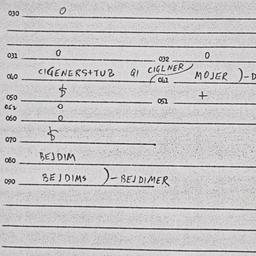 030 0
031 0 032 0
040 CIGENERSTTUB GI CIGLNER 041 MOJER )-D
050 $ 051 +
052 0
060 0
070 $
080 BEJDIM
090 BEJDIMS )-BEJDIMER